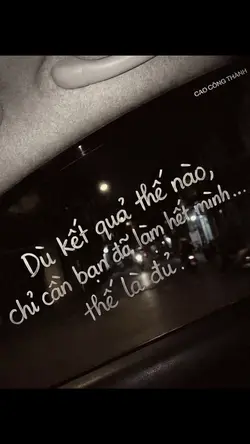 CAO CÔNG THÀNH
Dù kết quả thế nào,
chỉ cần bạn đã làm hết mình...
thế là đủ!